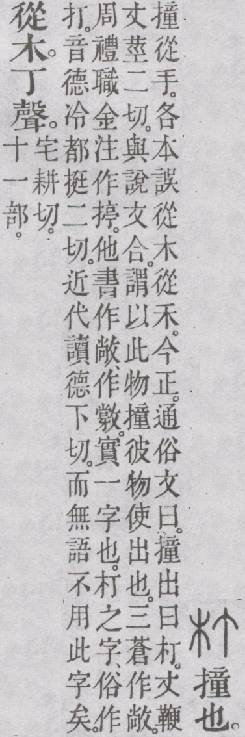 朾撞也。
撞從手。各本誤從木從禾。今正。通俗文曰。撞出曰朾。丈鞭
丈莖二切。與說文合。謂以此物撞彼物使出也。三蒼作敞。
周禮職金注作揨。他書作敞、作𢾊。實一字也。朾之字、俗作
打。音德冷都挺二切。近代讀德下切。而無語不用此字矣。
從木。丁聲。
宅耕切。
十一部。